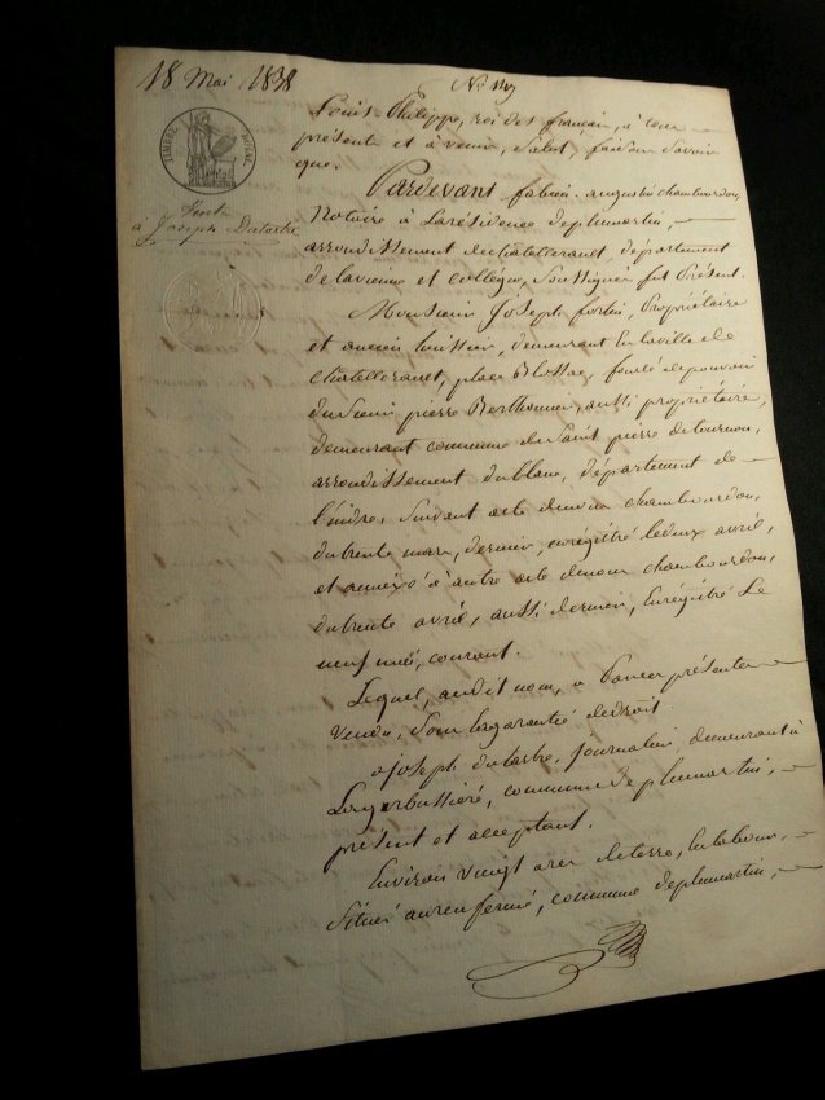 18 Mai 1838
N°
TIMBRE ROYAL
Vente
à Joseph Dutartre
Louis Philippe, roi des français, à tous
présents et à venir, Salut, faisons Savoir
que.
Pardevant fabien auguste chambourdon,
Notaire à Larésidence depleumartin,
arrondissement dechatellerault, département
delavienne et collègue, Soussignés fut Présent.
Monsieur Joseph fortin, Propriétaire
et ancien huissier, demeurant enlaville de
chatellerault, place Blossac, fondé depouvoir
dusieur pierre Berthomier, aussi propriétaire,
demeurant commune de Saint pierre detournon,
arrondissement dublanc, département de
l'indre, Suivant acte dumême chambourdon,
dutrente mars, dernier, enrégistré ledeux avril,
et annexé à autre acte dumême chambourdon,
dutrente avril, aussi dernier, Enrégistré Le
neuf mai, courant.
Lequel, audit nom, a Parces présentes
vendu, Sous lagarantie dedroit
a joseph dutartre, journalier, demeurant à
Lagerbussière, commune de pleumartin,
présent et acceptant.
Environ vingt ares deterre, enlabour,
Situés aurenfermé, commune depleumartin,